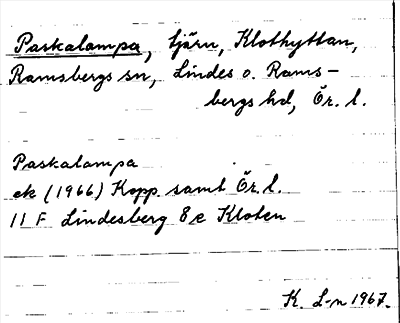 Paskalampa, tjärn, Klothyttan,
Ramsbergs sn, Lindes o. Rams-
bergs hd, Ör. l.
Paskalampa
ek (1966) Kopp. samt Ör. l.
11 F Lindesberg 8 e Kloten
K. L-n 1967.